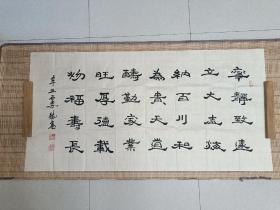 寧靜致遠
立大志海
納百川和
為貴天道
醻勤家業
旺厚德載
物福壽長
辛丑